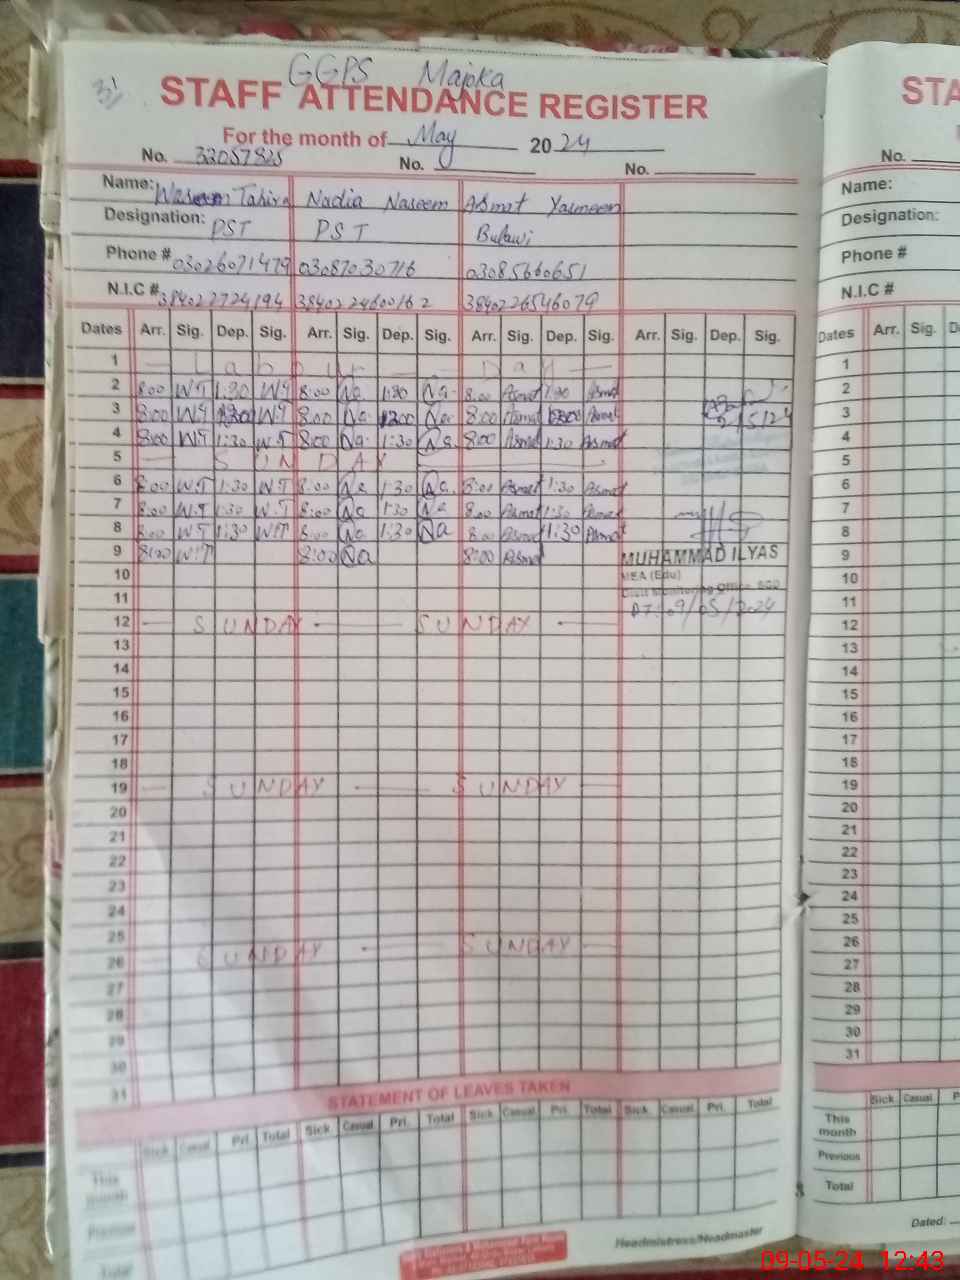 GGPS Majoka
STAFF ATTENDANCE REGISTER STA
For the month of May 2024
No. 32057825 No. No. No.
Name: Waseem Tahira Nadia Naseem Asmat Yasmeen Name:
Designation: PST PST Bulawi Designation:
Phone # 03026071479 03087030716 03085660651 Phone #
N.I.C # 384022724194 3840224600162 3840226546079 N.I.C #
Dates Arr. Sig. Dep. Sig. Arr. Sig. Dep. Sig. Arr. Sig. Dep. Sig. Arr. Sig. Dep. Sig. Dates Arr. Sig. D
1 Labour Day 1
2 8:00 WT 1:30 WT 8:00 Na 1:30 Na 8:00 Asmat 1:30 Asmat 2
3 8:00 WT WT 8:00 Na Na 8:00 Asmat Asmat 3
4 8:00 WT 1:30 WT 8:00 Na 1:30 Na 8:00 Asmat 1:30 Asmat 4
5 SUNDAY 5
6 8:00 W.T 1:30 WT 8:00 Na 1:30 Na 8:00 Asmat 1:30 Asmat 6
7 8:00 W.T 1:30 W.T 8:00 Na 1:30 Na 8:00 Asmat 1:30 Asmat 7
8 8:00 WT 1:30 WT 8:00 Na 1:30 Na 8:00 Asmat 1:30 Asmat 8
9 8:00 WT 8:00 Na 8:00 Asmat MUHAMMAD ILYAS 9
10 MEA (Edu) 10
11 Distt Monitoring Office SGD 11
12 SUNDAY SUNDAY DT:09/05/2024 12
13 13
14 14
15 15
16 16
17 17
18 18
19 SUNDAY SUNDAY 19
20 20
21 21
22 22
23 23
24 24
25 25
26 SUNDAY SUNDAY 26
27 27
28 28
29 29
30 30
31 31
STATEMENT OF LEAVES TAKEN
Sick Casual Pri. Total Sick. Casual Pri. Total Sick Casual Pri. Total Sick. Casual Pri. Total Sick Casual P
This month This month
Previous Previous
Total Total
Headmistress/Headmaster Dated:
09-05-24 12:43